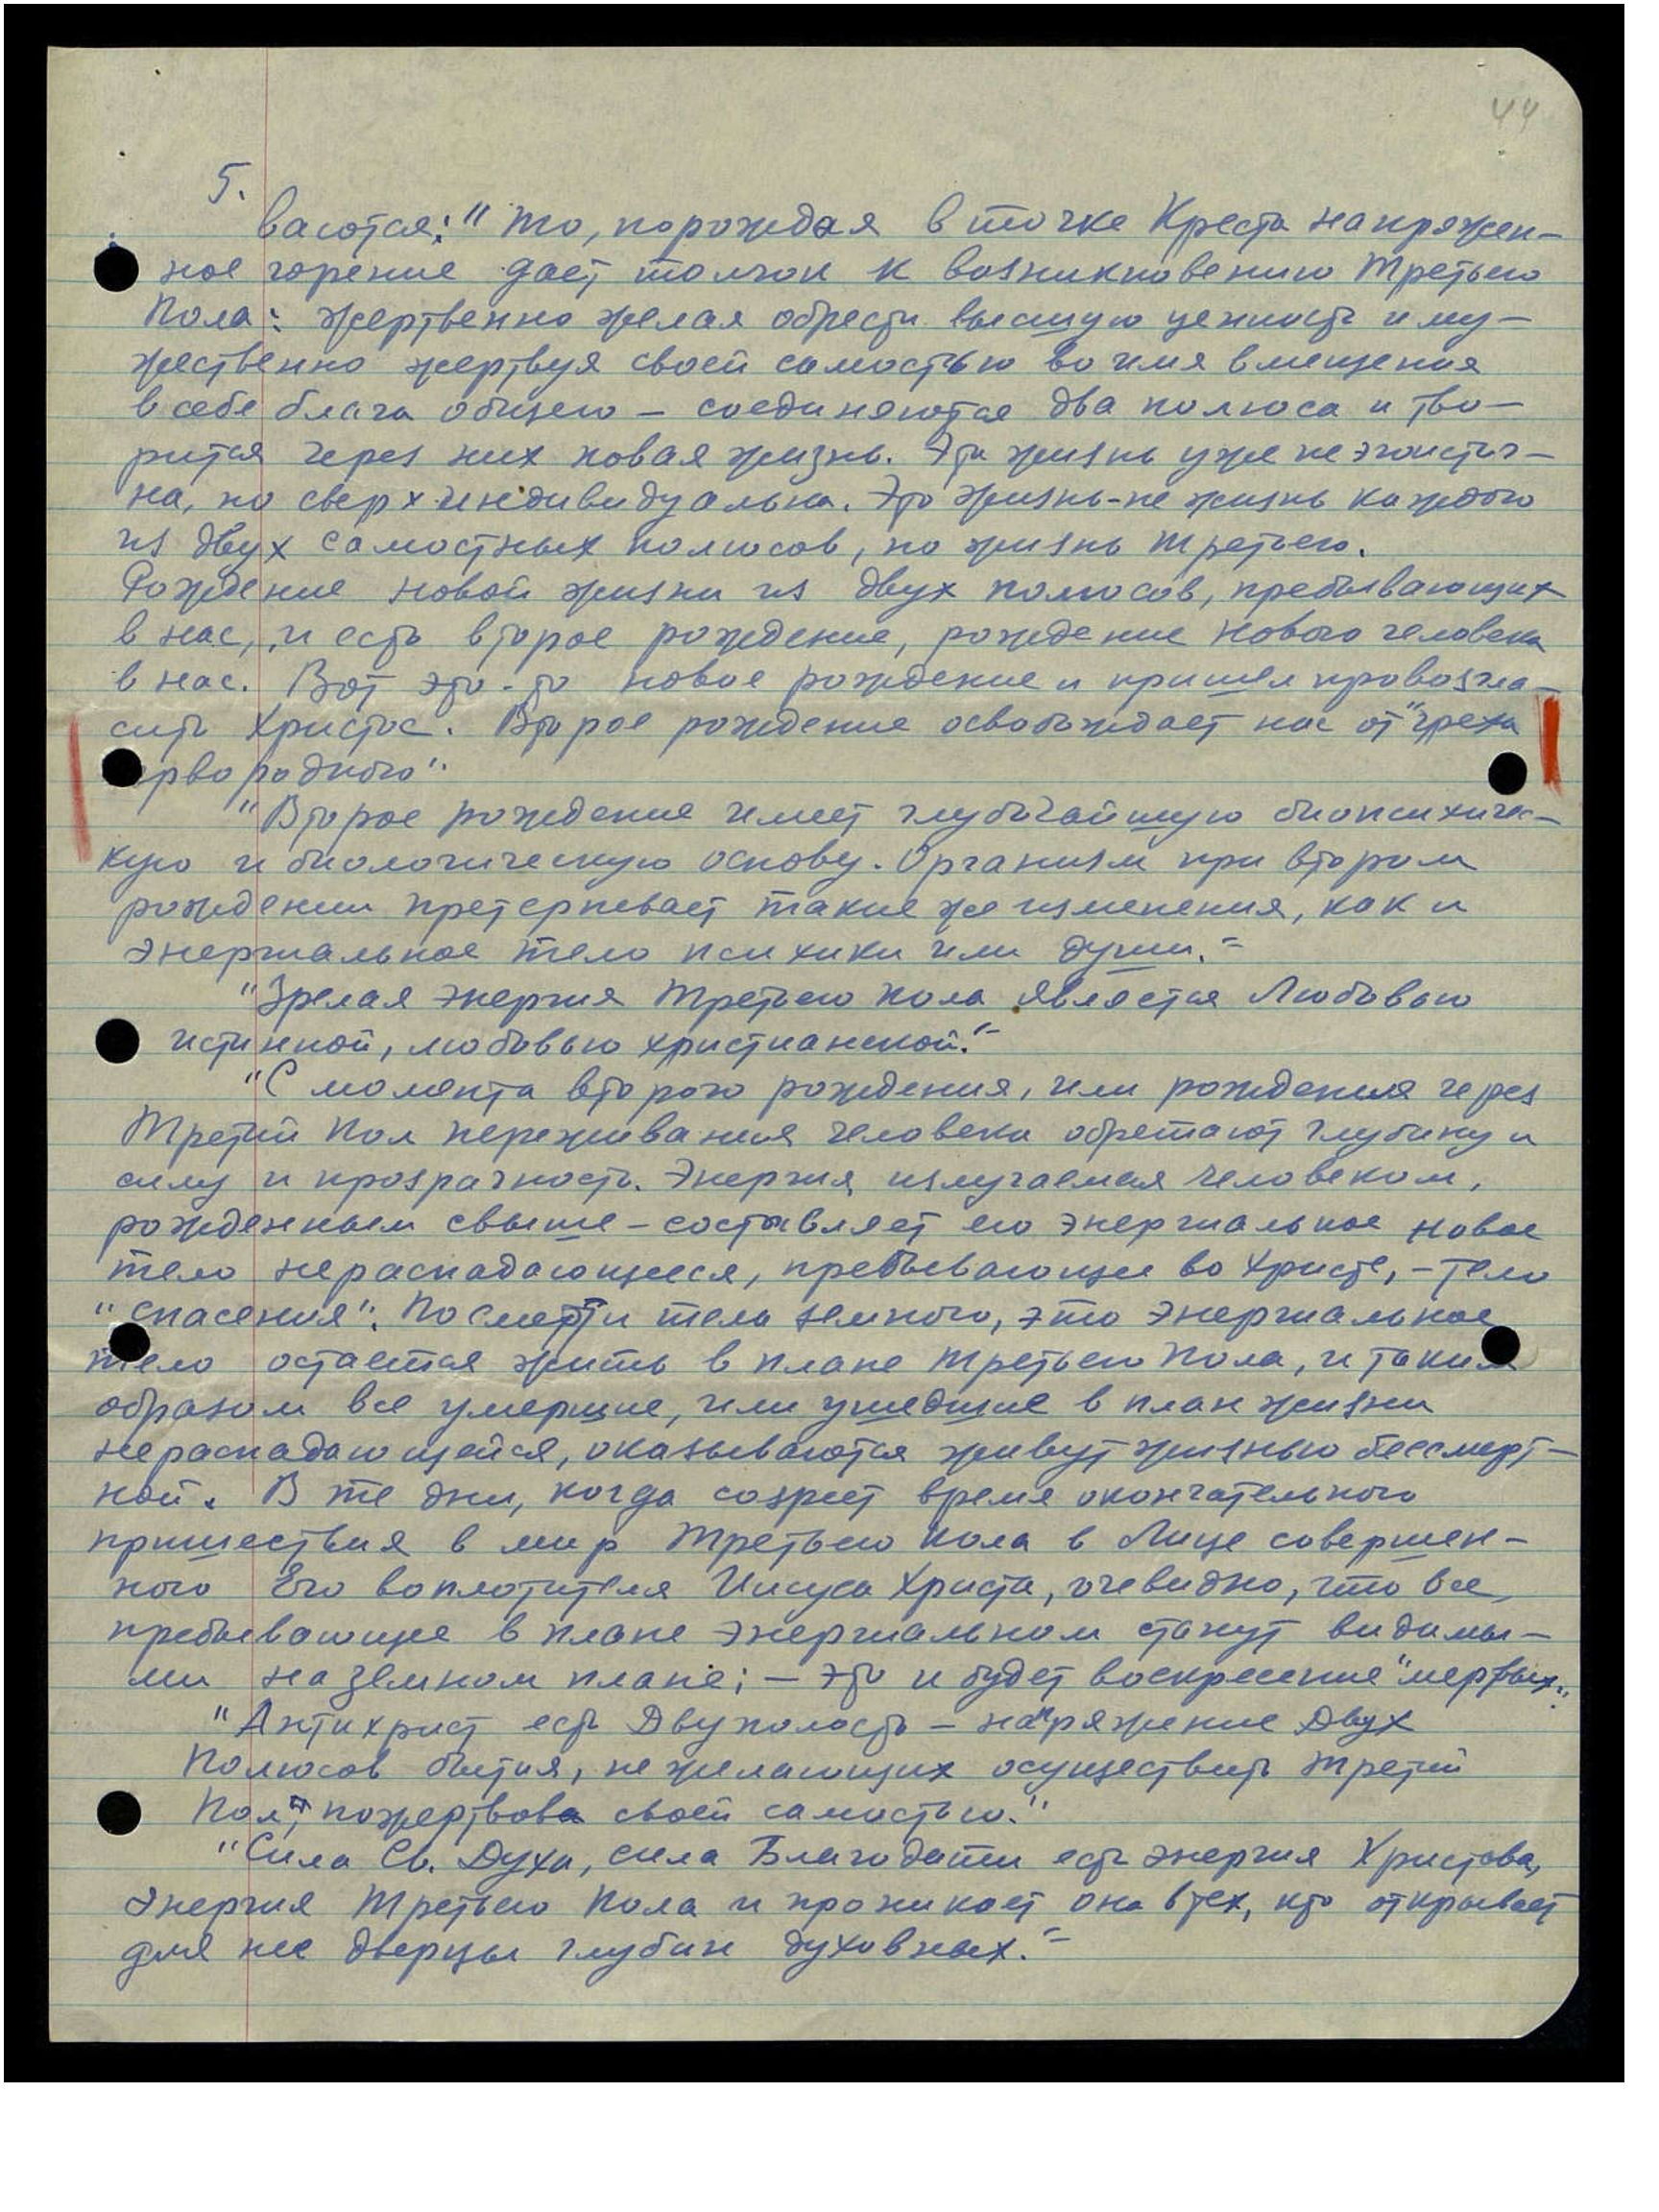 44
5.
ваются:" то, порождая в точке Креста напряжен-
ное горение дает толчок к возникновению Третьего
Пола: жертвенно желая обрести высшую ценность и му-
жественно жертвуя своей самостью во имя вмещения
в себе блага общего – соединяются два полюса и тво-
рится через них новая жизнь. Эта жизнь уже не эгоистич-
на, но сверхиндивидуальна. Это жизнь - не жизнь каждого
из двух самостных полюсов, но жизнь третьего.
Рождение новой жизни из двух полюсов, пребывающих
в нас, и есть второе рождение, рождение нового человека
в нас. Вот это-то новое рождение и пришел провозгла-
сить Христос. Второе рождение освобождает нас от "греха
ервородного".
"Второе рождение имеет глубочайшую биопсихичес-
кую и биологическую основу. Организм при втором
рождении претерпевает такие же изменения, как и
энергиальное тело психики или души."
"Зрелая энергия Третьего Пола является Любовью
истинной, любовью христианской."
"С момента второго рождения, или рождения через
Третий Пол переживания человека обретают глубину и
силу и прозрачность. Энергия, излучаемая человеком,
рожденным свыше – составляет его энергиальное новое
тело нераспадающееся, пребывающее во Христе, – тело
"спасения". По смерти тела земного, это энергиальное
тело остается жить в плане Третьего Пола, и таким
образом все умершие, или ушедшие в план жизни
нераспадающейся, оказываются живут жизнью бессмерт-
ной. В те дни, когда созреет время окончательного
пришествия в мир Третьего Пола в Лице совершен-
ного Его воплотителя Иисуса Христа, очевидно, что все,
пребывающие в плане энергиальном станут видимы-
ми на земном плане; – это и будет воскресение "мертвых".
"Антихрист есть Двуполость – напряжение Двух
Полюсов бытия, не желающих осуществить Третий
Пол, пожертвова своей самостью."
"Сила Св. Духа, сила Благодати есть энергия Христова,
энергия Третьего Пола и проникает она в тех, кто открывает
для нее дверцы глубин духовных."